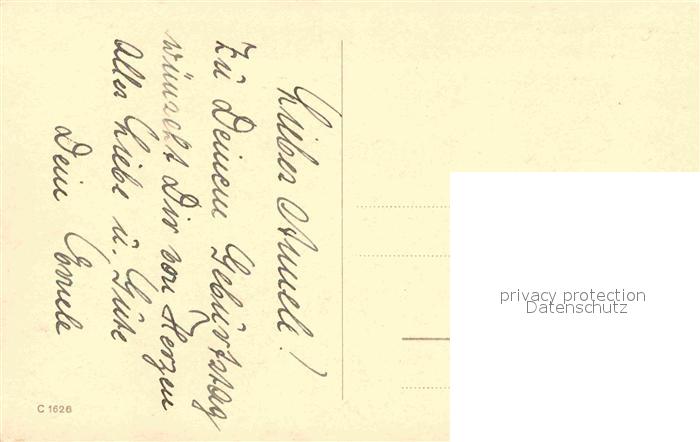 Liebes
Zu Deinem Geburtstag
wünscht Dir von Herzen
alles Liebe u. Gute
Dein
C 1626
privacy protection
Datenschutz